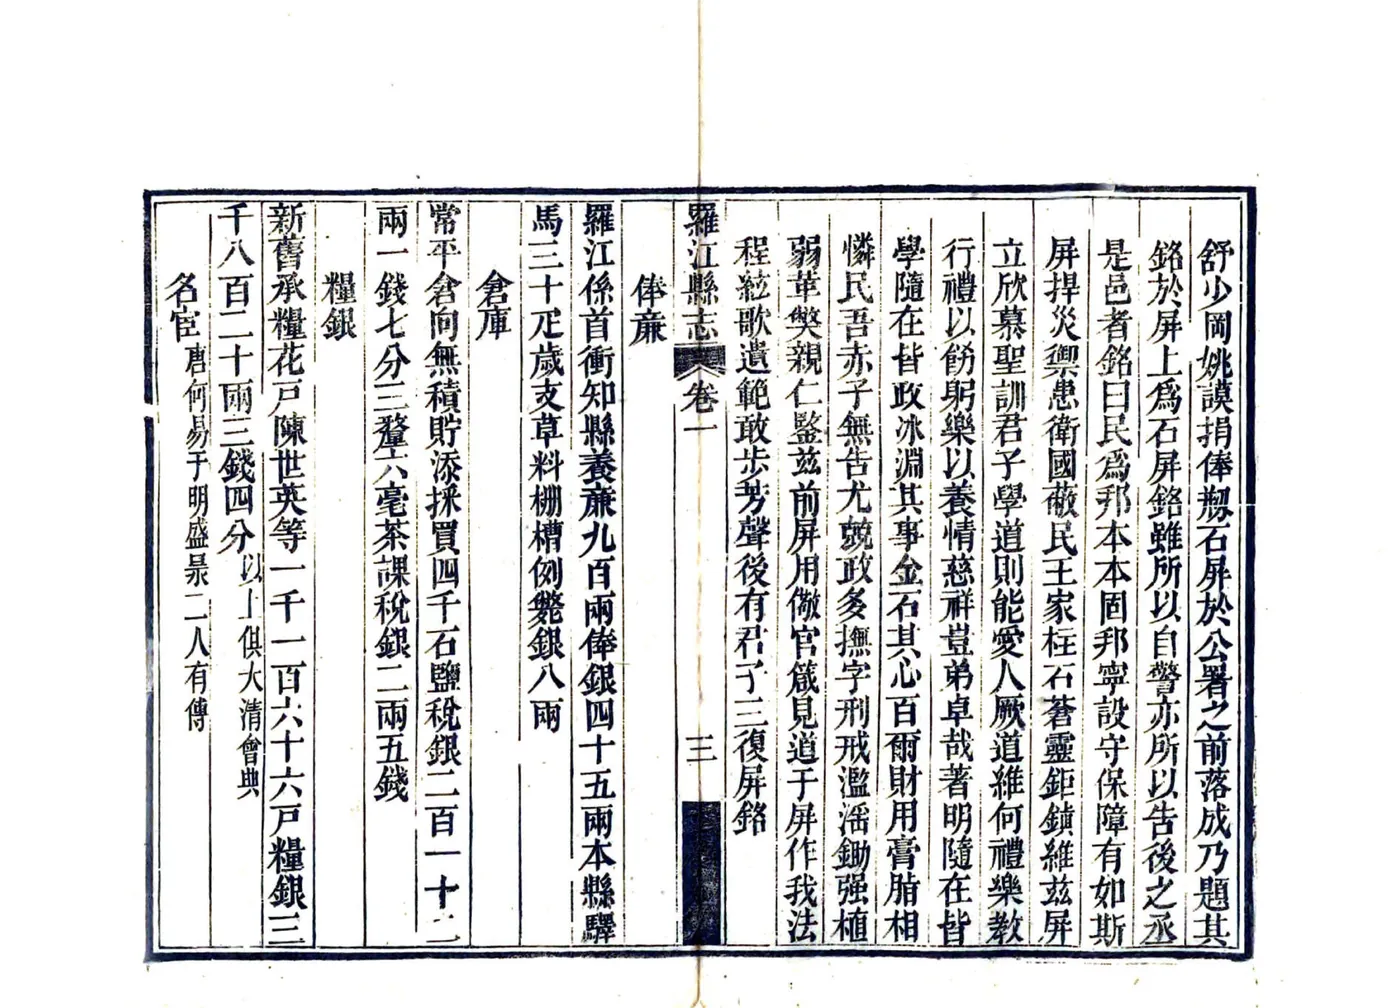 舒少岡姚謨捐俸剏石屏於公署之前落成乃題其
銘於屏上爲石屏銘雖所以自警亦所以告後之丞
是邑者銘曰民爲邦本本固邦寧設守保障有如斯
屏捍災禦患衛國蔽民王家柱石蒼靈鉅鎮維茲屏
立欣慕聖訓君子學道則能愛人厥道維何禮樂教
行禮以飭躬樂以養情慈祥豈弟卓哉著明隨在皆
學隨在皆政冰淵其事金石其心百爾財用膏脂相
憐民吾赤子無告尤兢政多撫字刑戒濫滛鋤强植
弱革獘親仁鑒兹前屏用儆官箴見道于屏作我法
程絃歌遺範敢步芳聲後有君子三復屏銘
羅江縣志 卷一 三
俸亷
羅江係首衝知縣養亷九百兩俸銀四十五兩本縣驛
馬三十疋歲支草料棚槽例斃銀八兩
倉庫
常平倉向無積貯添採買四千石鹽稅銀二百一十二
兩一錢七分三釐六毫茶課稅銀二兩五錢
糧銀
新舊承糧花戸陳世英等一千一百六十六戸糧銀三
千八百二十兩三錢四分以上俱大清會典
名宦唐何易于明盛杲二人有傳